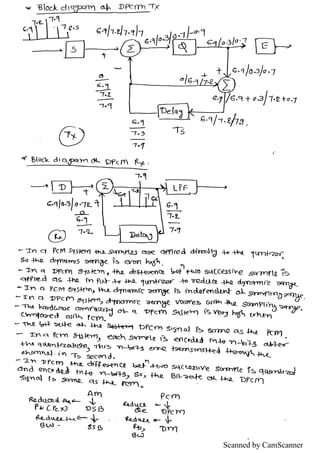 * Block diagram of DPCM Tx
7.2 7.9
6.9 7 8.5
6.9/7.2/7.9/7
6.9/0.3/0.7/-0.9
6.9/0.3/0.7
S
Σ
Q
E
+
-
+
6.9/0.3/0.7
0/6.9/7.2
Σ
0
6.9
7.2
7.9
6.9/6.9+0.3/7.2+0.7
Delay
6.9/7.2/7.9
Tx
6.9
7.2
7.9
Ts
* Block diagram of DPCM Rx.
7.9
D
Σ
LPF
+
6.9/0.3/0.7
0
6.9
7.2
6.9
7.2
7.9
Rx
Delay
- In a PCM System the samples are applied directly to the quantizer,
So the dynamic range is even high.
- In a DPCM System, the difference betn two successive sample is
applied as the input to the quantizer to reduce the dynamic range
- In a PCM System, the dynamic range is independent of sampling range.
- In a DPCM System, dynamic range varies with the sampling range.
- The hardware complexity of a DPCM System is very high when
compared with PCM.
- The bit rate of the DPCM signal is same as the PCM.
- In a PCM System, each sample is encoded into n-bits after
the quantization, This n-bits are transmitted through the
channel in Ts second.
- In DPCM the difference betn two successive sample is quantized
and encoded into n-bits, So, the Bit rate of the DPCM
signal is same as the PCM.
AM PCM
Reduced Pt (Pc) ← ↓ DSB
Reduce ← ↓ DPCM
Reduce the BW ← ↓ SSB
Reduce BW ← ↓ DM
Scanned by CamScanner